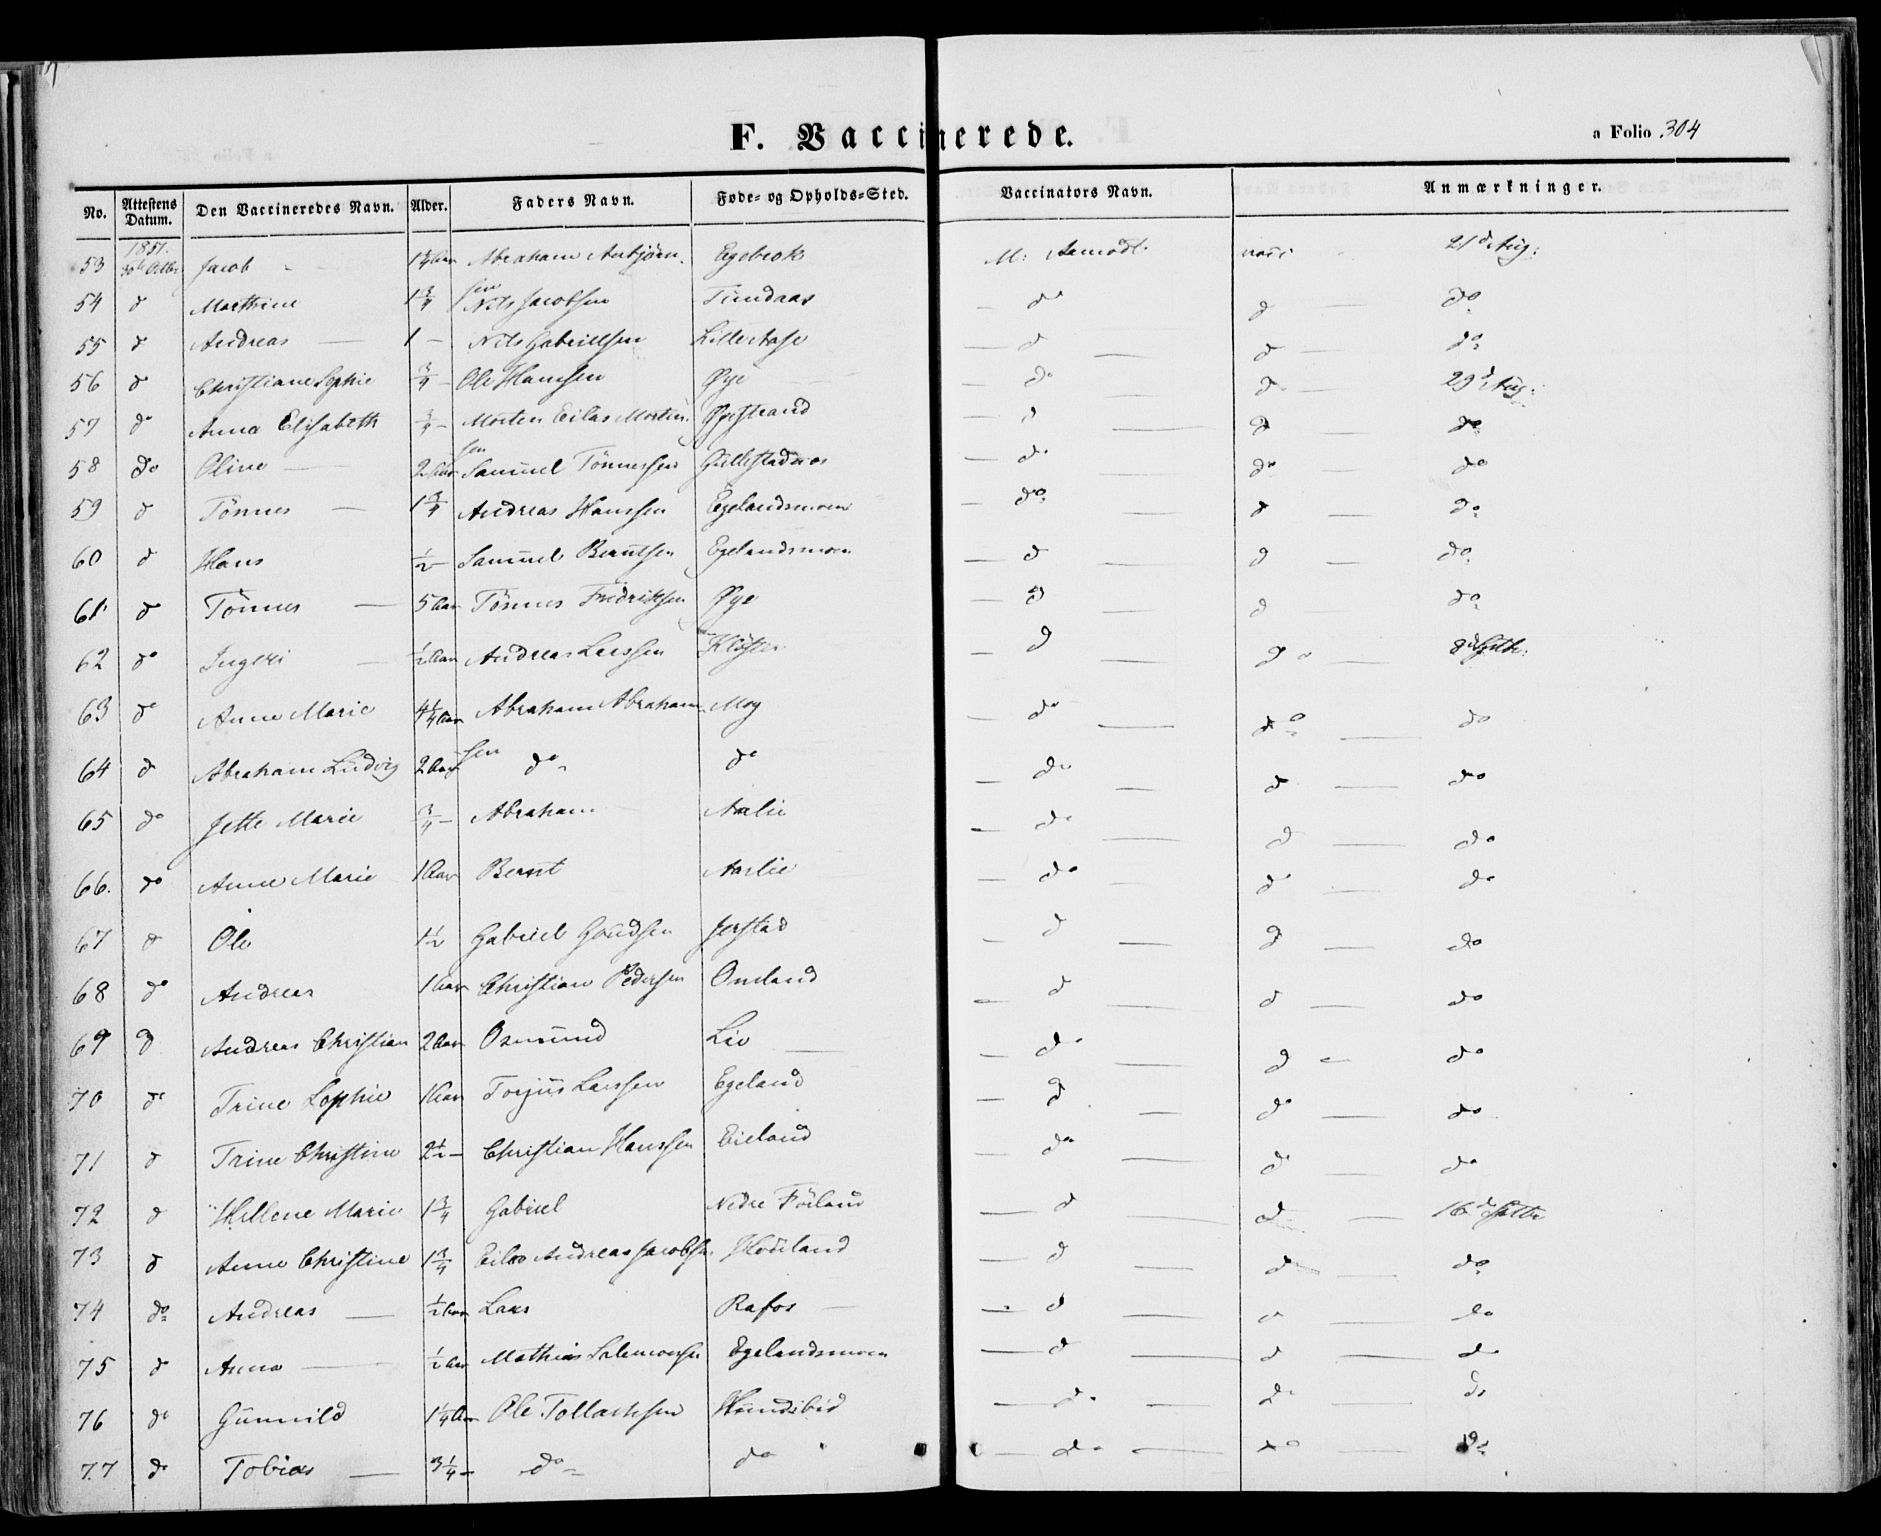 F. Vaccinerede.
a Folio 304
No. Attestens Datum. Den Vaccineredes Navn. Alder. Faders Navn. Føde- og Opholds-Sted. Vaccinators Navn. Anmærkninger.
1851.
53 Jacob 1¼ Aar Abraham Anbjørn- Egebrok M: Aamodt 21d Aug:
sen
54 d Marthine 1¾ Nils Jacobsen do d do
55 d Andreas — 1 — Nils Gabrielsen d d do
56 d Christiane Sophie ¾ — Ole Hansen Øye do do 29d Aug:
57 do Anna Elisabeth ¾ — Morten Eilas Morten- Øyestrand d d do
sen
58 do Oline — 2 Aar Samuel Tönnessen do do do
59 d Tönnes — 1¾ Andreas Hanssen Egelandsmoen do d do
60 d Hans ½ — Samuel Berntsen Egelandsmoen d d do
61 d Tönnes — 5 Aar Tönnes Fredriksen Øye d d do
62 do Ingeri — ½ Aar Andreas Larssen Klöften d do 8d Sptbr:
63 do Anne Marie 4¼ Aar Abraham Abraham- Moy do do do
sen
64 d Abraham Ludvig 2 Aar do do do d do
65 do Jette Marie ¾ — Abraham Aalie do d do
66. do Anne Marie 1 Aar Bernt Aarlie do d do
67 d Ole 1½ Gabriel Gundsen Jerstad d d do
68 do Andreas 1 Aar Christian Pedersen Omland d d do
69 d Andreas Christian 2 Aar Osmund Lie — do d do
70 do Trine Sophie 1 Aar Torjus Larssen Egeland d do do
71 d Trine Christine 2½ — Christian Hanssen Eieland do d do
72 d Hellene Marie 1¾ Gabriel Nedre d d 16d Sptbr
73 d Anne Christine 1¾ Andreas Jacobsen Houland d d do
74 do Andreas — ½ Aar Lars Rafos — d d do
75 d Anna — ½ Aar Mathias Salemonsen Egelandsmoen d d do
76 do Gunnild 1¼ Aar Ole Tollachsen Hundsbid do do do
77 do Tobias — 3¼ — do do do do do